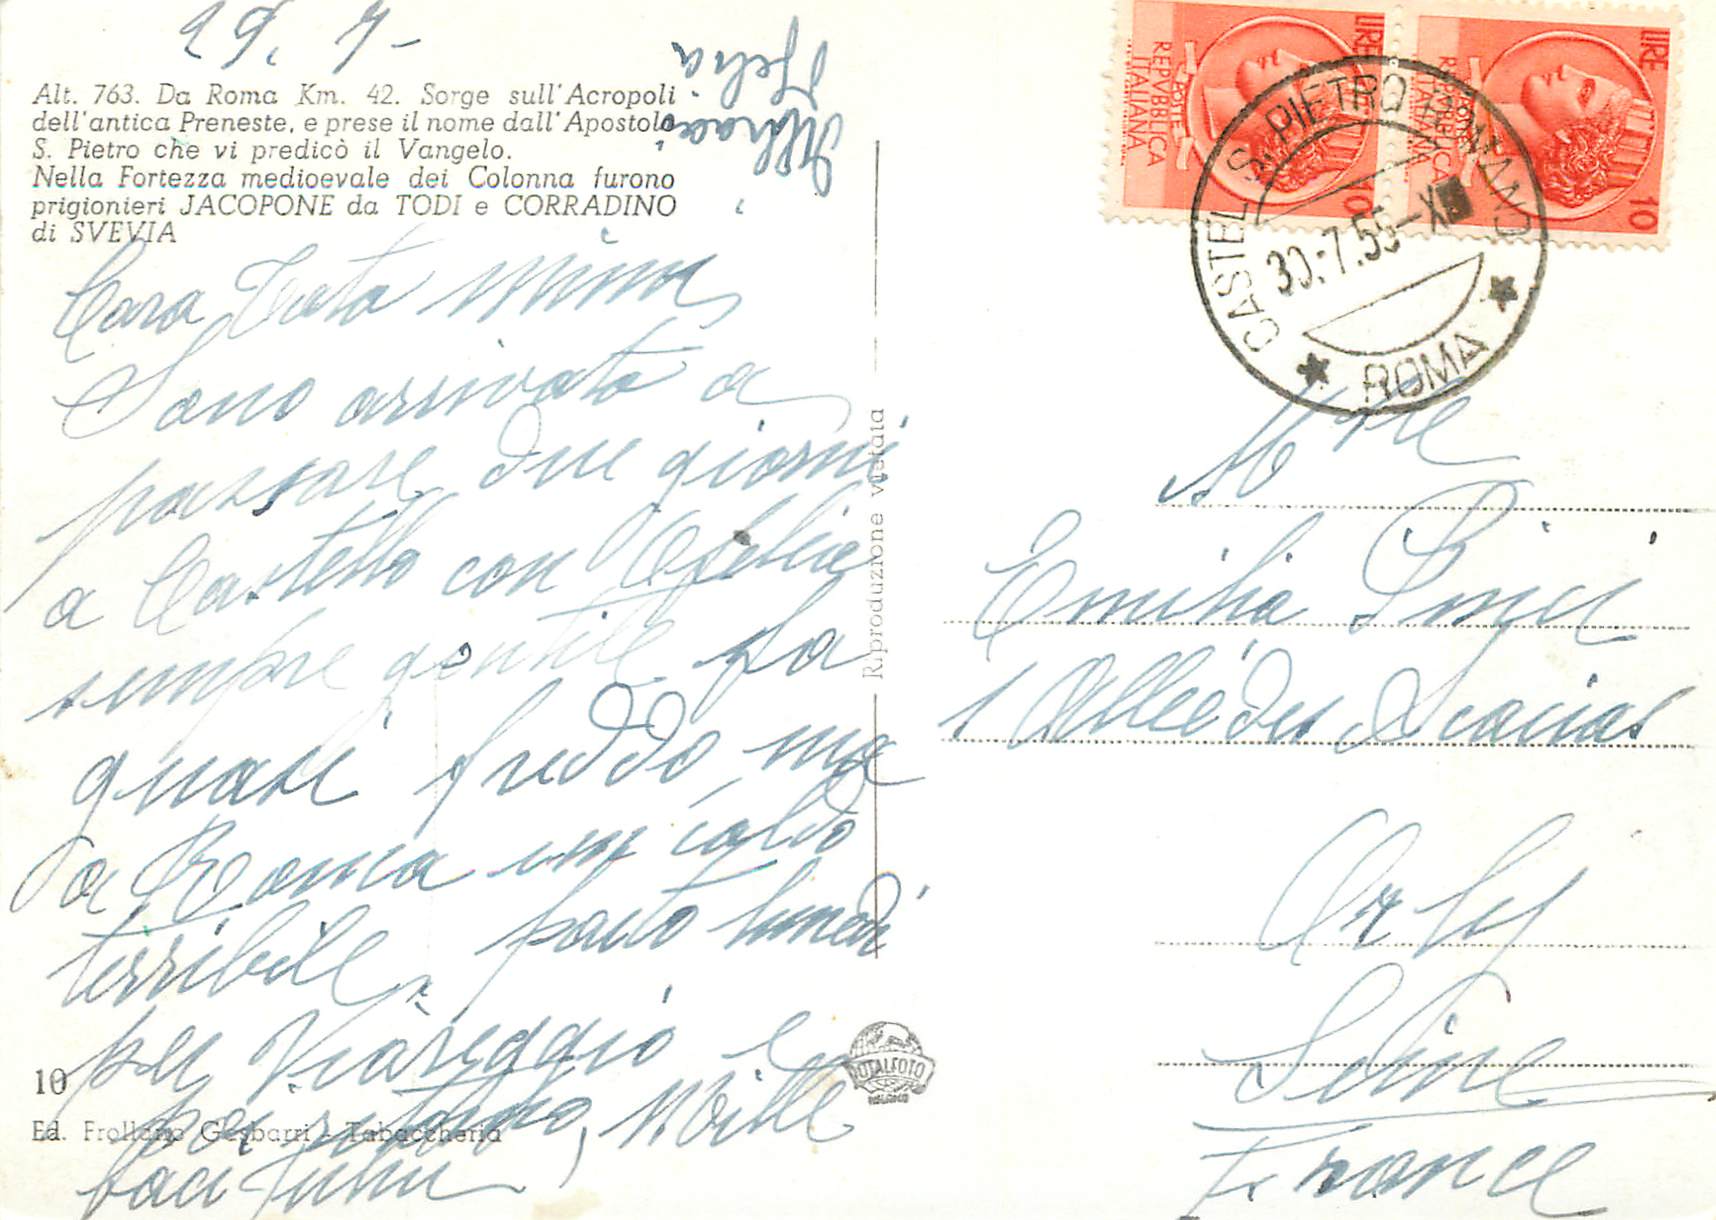 29. 7-
Alt. 763. Da Roma Km. 42. Sorge sull'Acropoli
dell'antica Preneste, e prese il nome dall'Apostolo
S. Pietro che vi predicò il Vangelo.
Nella Fortezza medioevale dei Colonna furono
prigionieri JACOPONE da TODI e CORRADINO
di SVEVIA
Cara Tata Mima,
Sono arrivata a
passare due giorni
a Castello con Ofelia
sempre gentile fa
quasi freddo, ma
a Roma un caldo
terribile, parto lunedì
per Viareggio e
poi ritorno, Mille
baci Juhu
Abbracci
Ofelia
10
Ed. Frollano Gasbarri - Tabaccheria
Riproduzione vietata
TOTALFOTO
MILANO
LIRE 10
POSTE
REPVBBLICA
ITALIANA
LIRE 10
POSTE
REPVBBLICA
ITALIANA
CASTEL S. PIETRO ROMANO
30.-7.55-X
ROMA
Mme
Emilia Pinci
1 Allée des Acacias
Orly
Seine
France